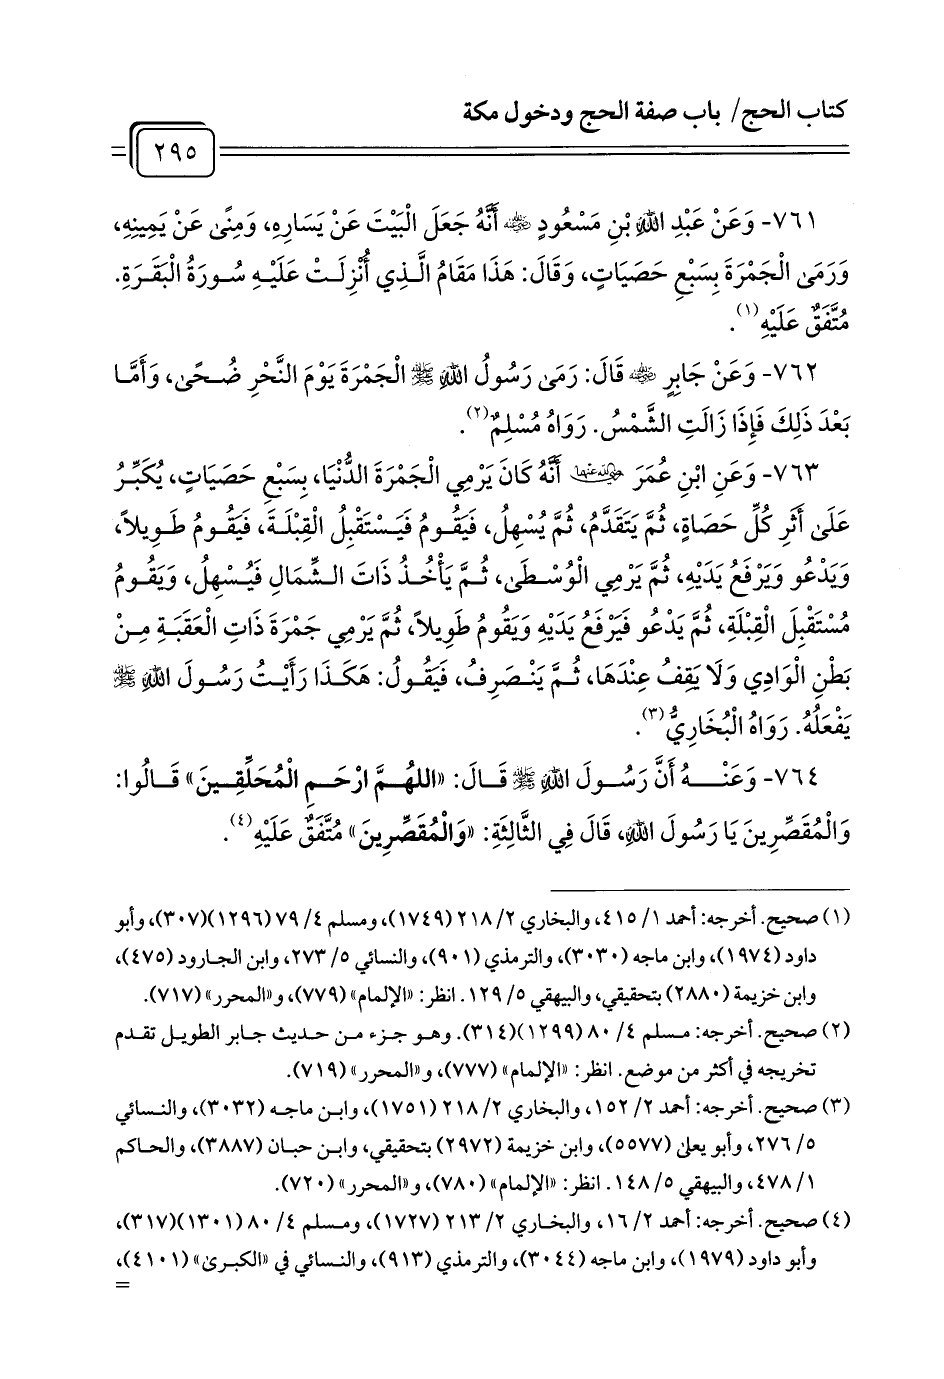 كتاب الحج/ باب صفة الحج ودخول مكة
٢٩٥
٧٦١- وَعَنْ عَبْدِ اللهِ بْنِ مَسْعُودٍ ﵁ أَنَّهُ جَعَلَ الْبَيْتَ عَنْ يَسَارِهِ، وَمِنًى عَنْ يَمِينِهِ،
وَرَمَى الْجَمْرَةَ بِسَبْعِ حَصَيَاتٍ، وَقَالَ: هَذَا مَقَامُ الَّذِي أُنْزِلَتْ عَلَيْهِ سُورَةُ الْبَقَرَةِ.
مُتَّفَقٌ عَلَيْهِ(١).
٧٦٢- وَعَنْ جَابِرٍ ﵁ قَالَ: رَمَى رَسُولُ اللهِ ﷺ الْجَمْرَةَ يَوْمَ النَّحْرِ ضُحًى، وَأَمَّا
بَعْدَ ذَلِكَ فَإِذَا زَالَتِ الشَّمْسُ. رَوَاهُ مُسْلِمٌ(٢).
٧٦٣- وَعَنِ ابْنِ عُمَرَ ﵄ أَنَّهُ كَانَ يَرْمِي الْجَمْرَةَ الدُّنْيَا، بِسَبْعِ حَصَيَاتٍ، يُكَبِّرُ
عَلَى أَثَرِ كُلِّ حَصَاةٍ، ثُمَّ يَتَقَدَّمُ، ثُمَّ يُسْهِلُ، فَيَقُومُ فَيَسْتَقْبِلُ الْقِبْلَةَ، فَيَقُومُ طَوِيلاً،
وَيَدْعُو وَيَرْفَعُ يَدَيْهِ، ثُمَّ يَرْمِي الْوُسْطَى، ثُمَّ يَأْخُذُ ذَاتَ الشِّمَالِ فَيُسْهِلُ، وَيَقُومُ
مُسْتَقْبِلَ الْقِبْلَةِ، ثُمَّ يَدْعُو فَيَرْفَعُ يَدَيْهِ وَيَقُومُ طَوِيلاً، ثُمَّ يَرْمِي جَمْرَةَ ذَاتِ الْعَقَبَةِ مِنْ
بَطْنِ الْوَادِي وَلَا يَقِفُ عِنْدَهَا، ثُمَّ يَنْصَرِفُ، فَيَقُولُ: هَكَذَا رَأَيْتُ رَسُولَ اللهِ ﷺ
يَفْعَلُهُ. رَوَاهُ الْبُخَارِيُّ(٣).
٧٦٤- وَعَنْهُ أَنَّ رَسُولَ اللهِ ﷺ قَالَ: «اللهُمَّ ارْحَمِ الْمُحَلِّقِينَ» قَالُوا:
وَالْمُقَصِّرِينَ يَا رَسُولَ اللهِ، قَالَ فِي الثَّالِثَةِ: «وَالْمُقَصِّرِينَ» مُتَّفَقٌ عَلَيْهِ(٤).
(١) صحيح. أخرجه: أحمد ١/ ٤١٥، والبخاري ٢/ ٢١٨ (١٧٤٩)، ومسلم ٤/ ٧٩ (١٢٩٦)(٣٠٧)، وأبو
داود (١٩٧٤)، وابن ماجه (٣٠٣٠)، والترمذي (٩٠١)، والنسائي ٥/ ٢٧٣، وابن الجارود (٤٧٥)،
وابن خزيمة (٢٨٨٠) بتحقيقي، والبيهقي ٥/ ١٢٩. انظر: «الإلمام» (٧٧٩)، و«المحرر» (٧١٧).
(٢) صحيح. أخرجه: مسلم ٤/ ٨٠ (١٢٩٩)(٣١٤). وهو جزء من حديث جابر الطويل تقدم
تخريجه في أكثر من موضع. انظر: «الإلمام» (٧٧٧)، و«المحرر» (٧١٩).
(٣) صحيح. أخرجه: أحمد ٢/ ١٥٢، والبخاري ٢/ ٢١٨ (١٧٥١)، وابن ماجه (٣٠٣٢)، والنسائي
٥/ ٢٧٦، وأبو يعلى (٥٥٧٧)، وابن خزيمة (٢٩٧٢) بتحقيقي، وابن حبان (٣٨٨٧)، والحاكم
١/ ٤٧٨، والبيهقي ٥/ ١٤٨. انظر: «الإلمام» (٧٨٠)، و«المحرر» (٧٢٠).
(٤) صحيح. أخرجه: أحمد ٢/ ١٦، والبخاري ٢/ ٢١٣ (١٧٢٧)، ومسلم ٤/ ٨٠ (١٣٠١)(٣١٧)،
وأبو داود (١٩٧٩)، وابن ماجه (٣٠٤٤)، والترمذي (٩١٣)، والنسائي في «الكبرى» (٤١٠١)،
=